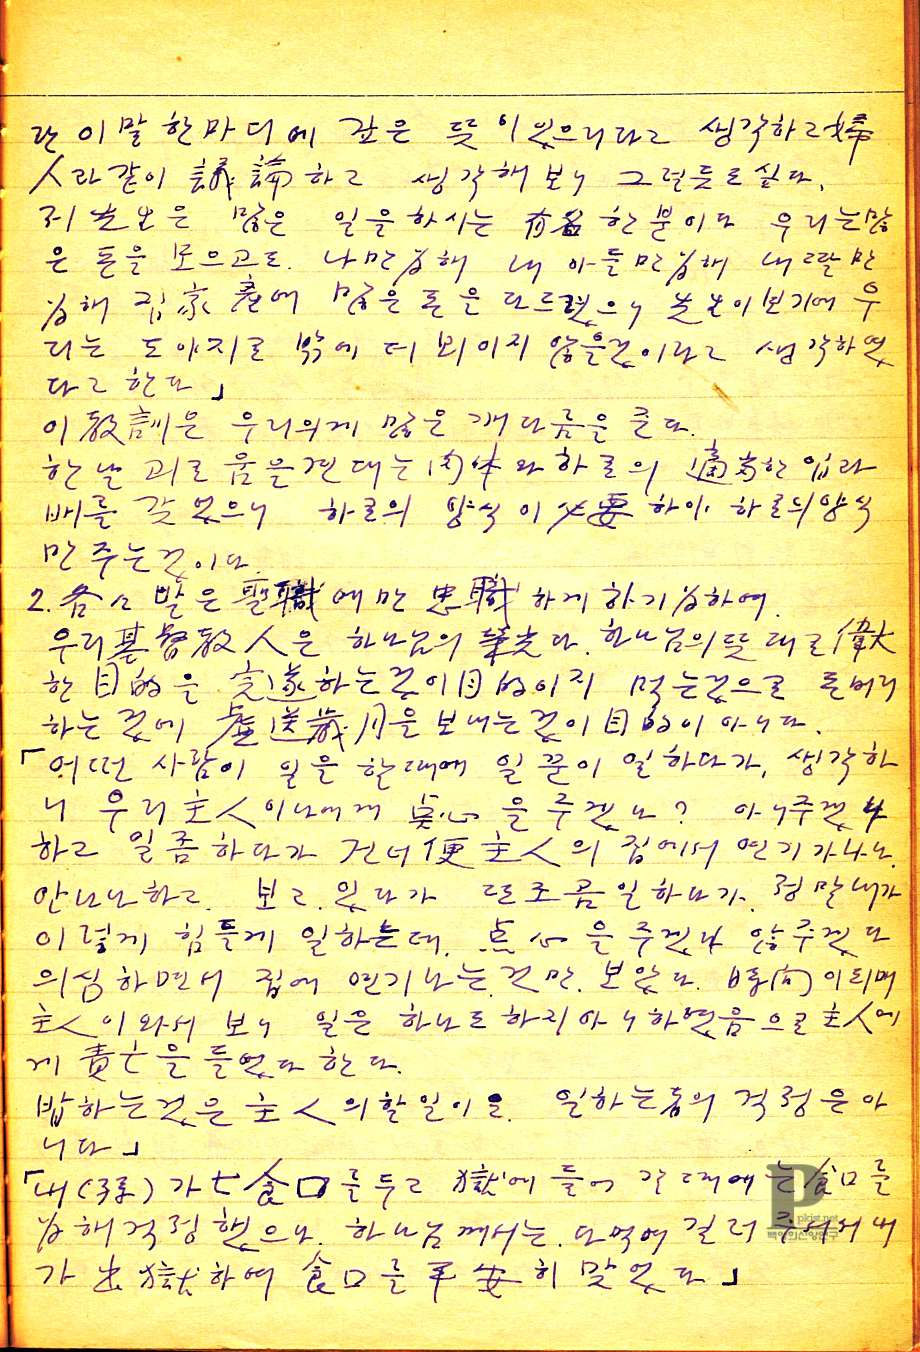 란 이말 한마디에 깊은 뜻이있으리라고 생각하고 婦
人과같이 議論하고 생각해보니 그럴듯도싶다.
저 先生은 많은 일을하시는 有名한분이다 우리는많
은 돈을 모으고도. 나만 爲해 내 아들만爲해 내 딸만
爲해 집家産에 많은돈을 다드렸으니 先生이보기에 우
리는 도야지로 밖에 더 뵈이지 않을것이라고 생각하였
다고 한다」
이 敎訓은 우리의게 많은 깨다름을 준다.
한날 괴로움을견대는 肉体와 하로의 適當한 입과
배를 갖었으니 하로의 양식이 必要하야 하로의양식
만 주는것이다.
2. 各々 맡은 聖職에만 忠職하게하기爲하여.
우리基督敎人은 하나님의 榮光과. 하나님의뜻대로偉大
한 目的을 完遂하는것이目的이지 먹는것으로 돈버리
하는것에 虛送歲月을 보내는것이 目的이 아니다.
「어떤 사람이 일을 할때에 일꾼이 일하다가, 생각하
니 우리主人이나에게 点心을 주겠나? 아니주겠나
하고 일좀하다가 건너便主人의 집에서 연기가나나.
안나나하고. 보고.있다가 또조곰일하다가. 정말내가
이렇게 힘들게 일하는데. 点心을 주겠나 않주겠나
의심하면서 집에 연기나는.것만.보았다. 때(向)이되매
主人이와서 보니 일은 하나도하지아니하였음으로主人에
게 責亡을 들었다 한다.
밥하는것은 主人의할일이요. 일하는놈의 걱정은아
니다」
「내(孫)가七食口를두고 獄에 들어 갈때에는食口를
爲해걱정했으나. 하나님께서는.다먹여 길러 주셔서내
가 出獄하여 食口를平安히 맞었다」
pkist.net